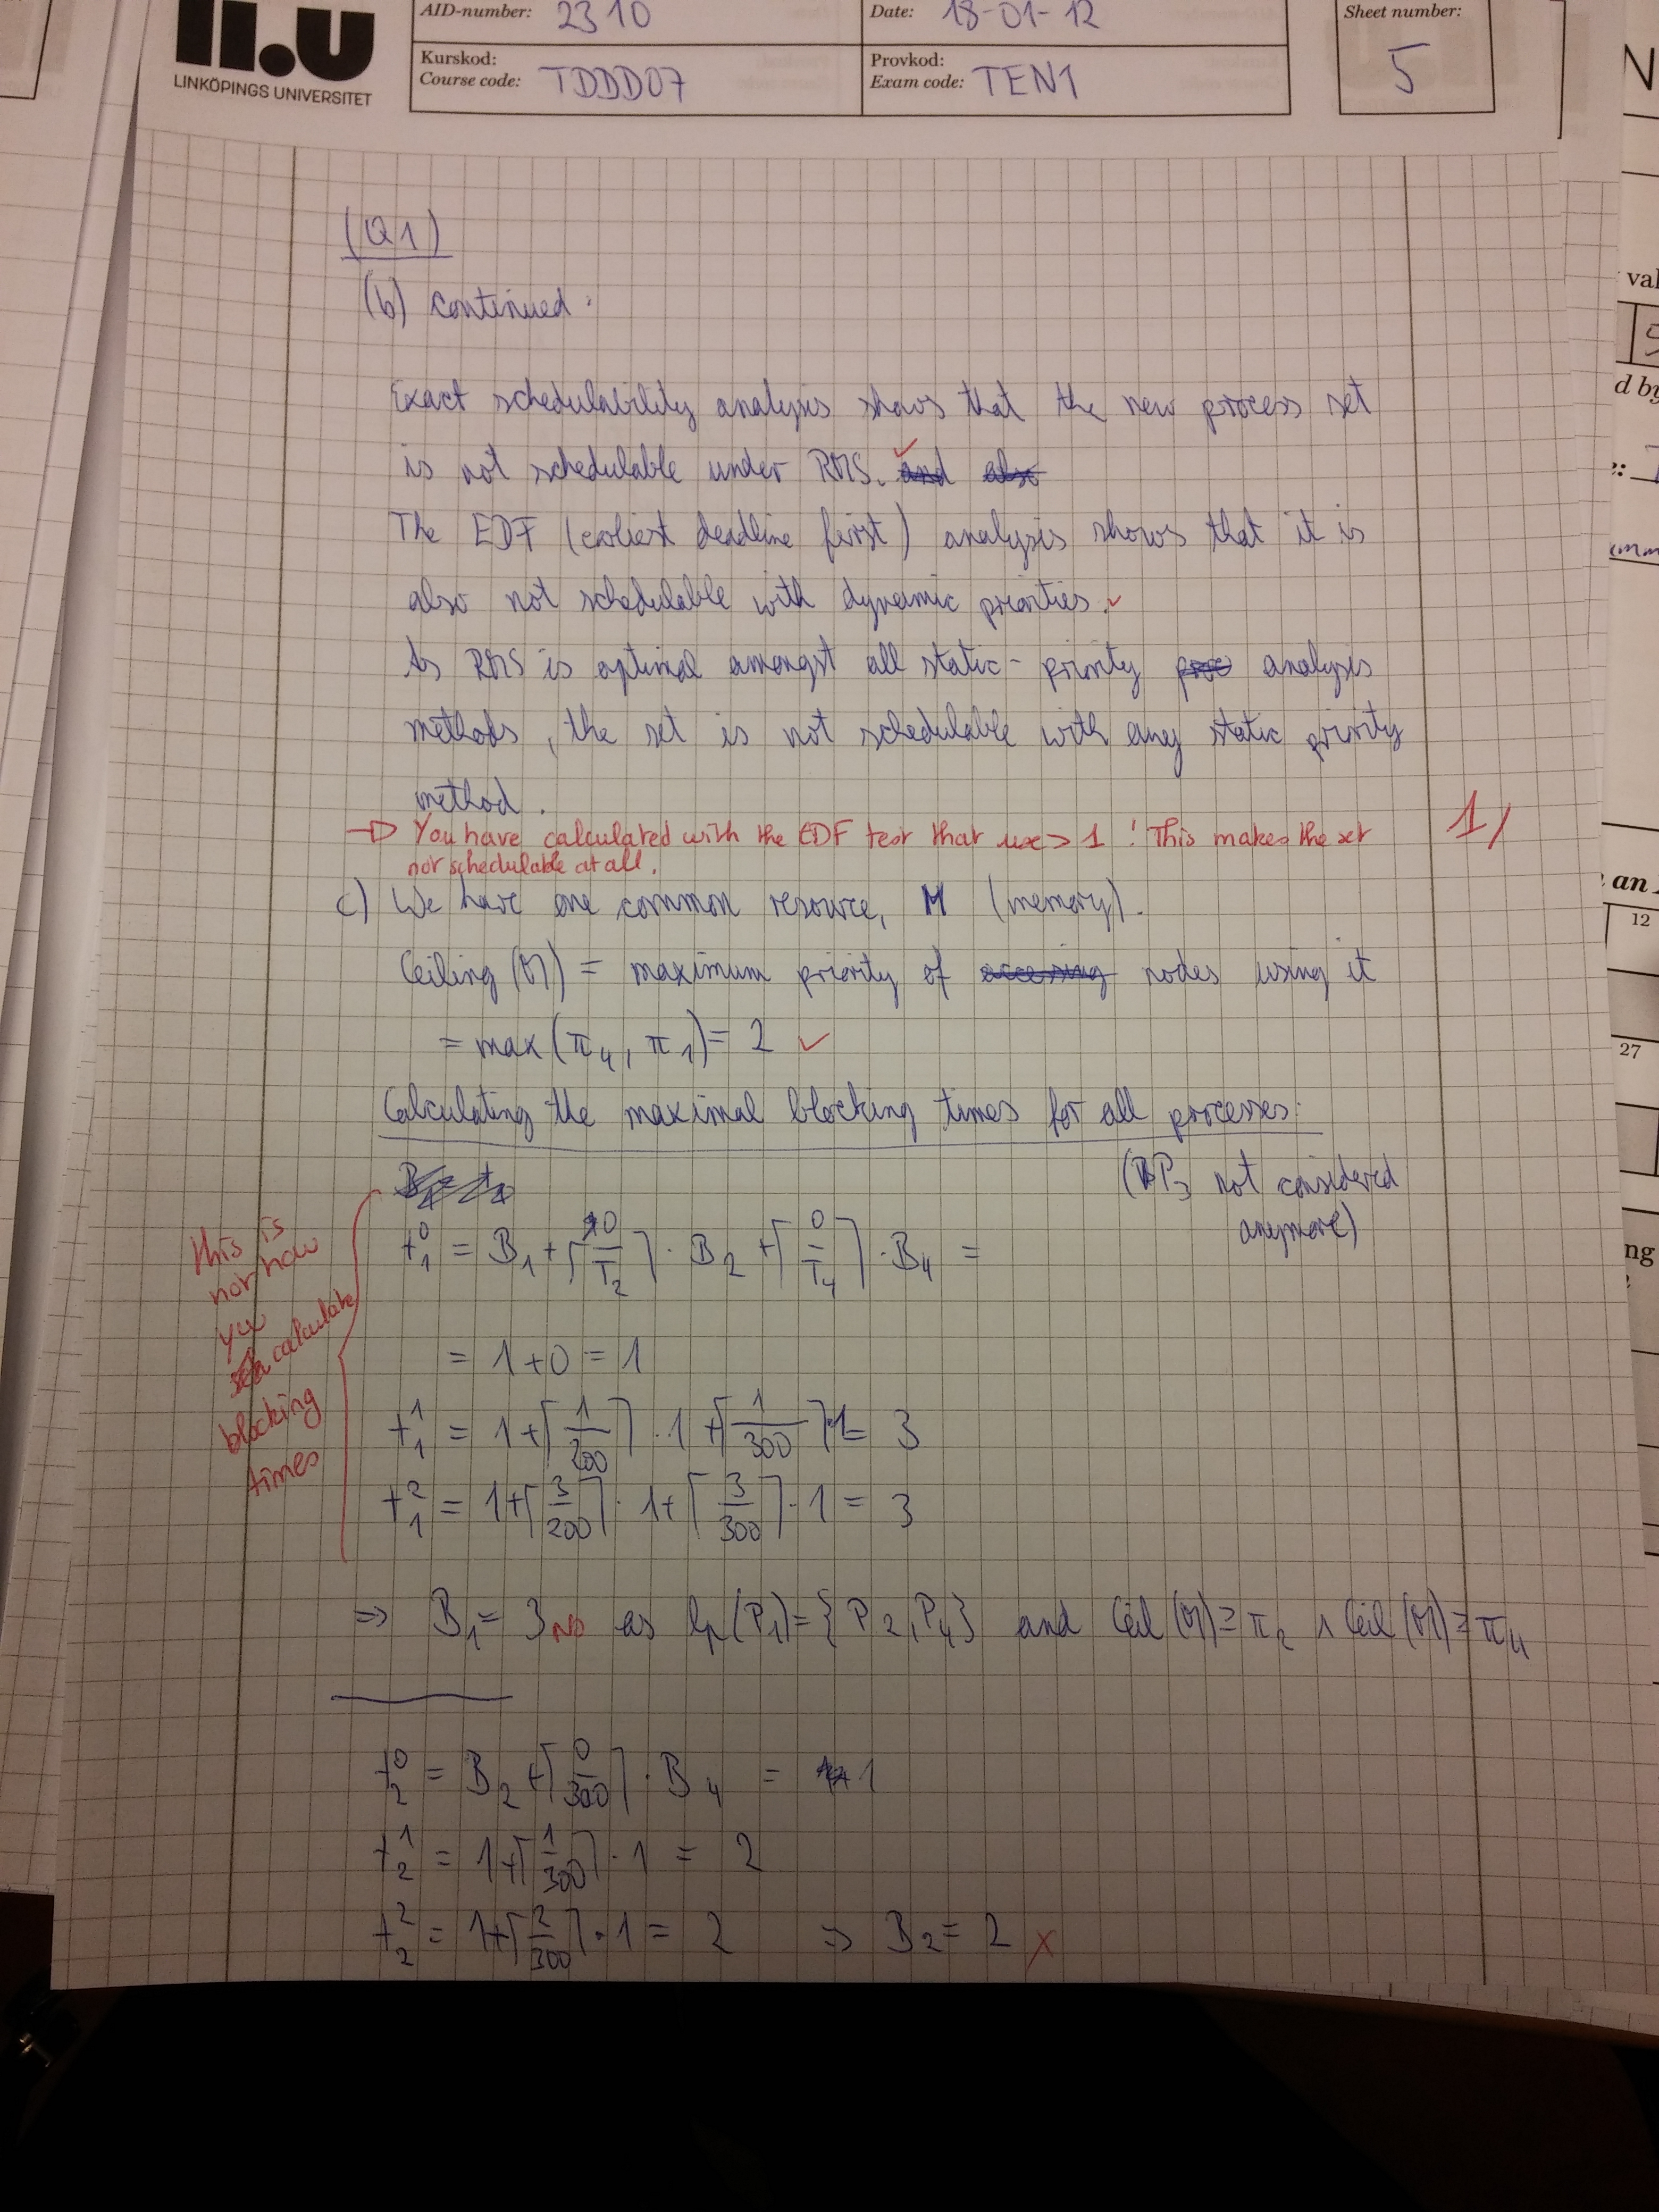 li.u
LINKÖPINGS UNIVERSITET
AID-number: 2310
Date: 18-01-12
Sheet number:
5
Kurskod:
Course code: TDDD07
Provkod:
Exam code: TEN1
(Q1)
(b) continued:
Exact schedulability analysis shows that the new process set
is not schedulable under RMS. and also
The EDF (earliest deadline first) analysis shows that it is
also not schedulable with dynamic priorities.
As RMS is optimal amongst all static-priority proc analysis
methods, the set is not schedulable with any static priority
method.
→ You have calculated with the EDF test that use > 1 ! This makes the set
not schedulable at all.
1/
c) We have one common resource, M (memory).
Ceiling (M) = maximum priority of accessing nodes using it
= max(π₄, π₁) = 2
Calculating the maximal blocking times for all processes:
(P₃ not considered
anymore)
t₁⁰ = B₁ + ⌈0/T₂⌉ · B₂ + ⌈0/T₄⌉ · B₄ =
This is
not how
you
calculate
blocking
times
= 1+0 = 1
t₁¹ = 1+⌈1/200⌉ · 1 + ⌈1/300⌉·1 = 3
t₁² = 1+⌈3/200⌉ · 1+⌈3/300⌉ · 1 = 3
⇒ B₁ = 3 NO as lp(P₁) = {P₂, P₄} and Ceil(M) ≥ π₂ ∧ Ceil(M) ≥ π₄
t₂⁰ = B₂ + ⌈0/300⌉ · B₄ = 1
t₂¹ = 1+⌈1/300⌉ · 1 = 2
t₂² = 1+⌈2/300⌉ · 1 = 2 ⇒ B₂ = 2 X
N
val
d by
an
12
27
ng